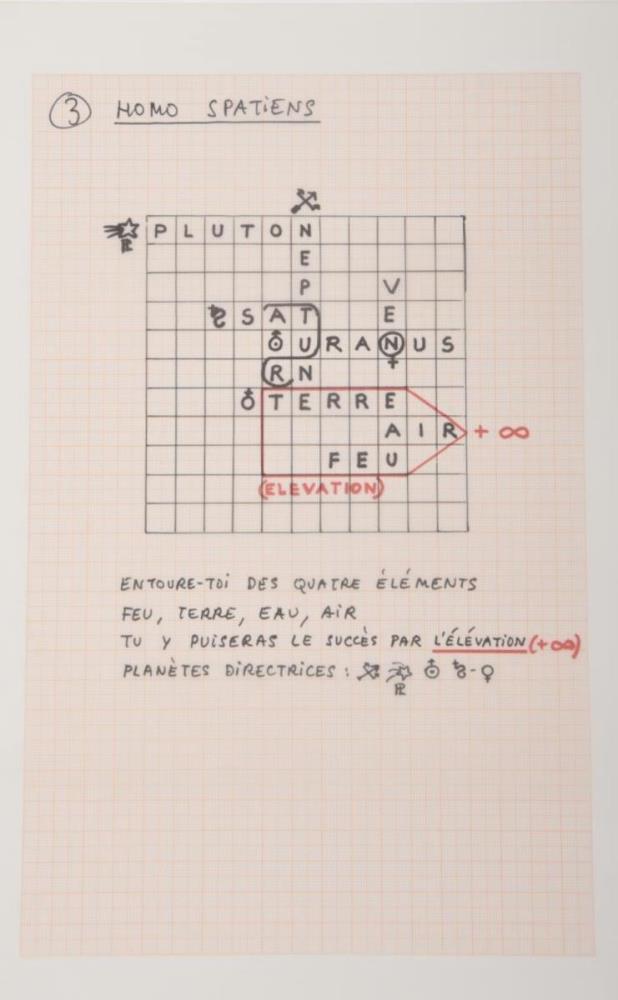 3 HOMO SPATiENS
PLUTON
E
P V
SAT E
URANUS
RN
TERRE
AIR + ∞
FEU
(ELEVATION)
ENTOURE-TOi DES QUATRE ÉLÉMENTS
FEU, TERRE, EAU, AiR
TU Y PUiSERAS LE SUCCÈS PAR L'ÉLÉVATION (+∞)
PLANÈTES DiRECTRiCES : ♁ - ♀